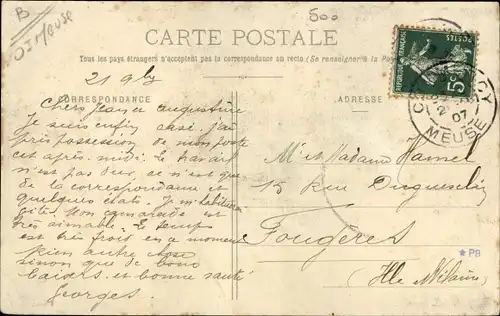 B
Meuse
500
CARTE POSTALE
Tous les pays étrangers n'acceptent pas la correspondance au recto (Se renseigner à la Pos
RÉPUBLIQUE FRANÇAISE
POSTES
5c
07
MEUSE
21 9bre
CORRESPONDANCE
ADRESSE
Chers Jean & Augustine
Je suis enfin casé j'ai
pris possession de mon poste
cet après-midi. Le travail
n'est pas dur, ce n'est que
de la correspondance et
quelques états. Je m'habituerai
vite. Mon camarade est
très aimable. Le temps
est très froid en ce moment
Rien autre
sinon que de bons
baisers et bonne santé
Georges.
Mr et Madame Hamel
15 rue Duguesclin
Fougères
(Ille Vilaine)
★PB